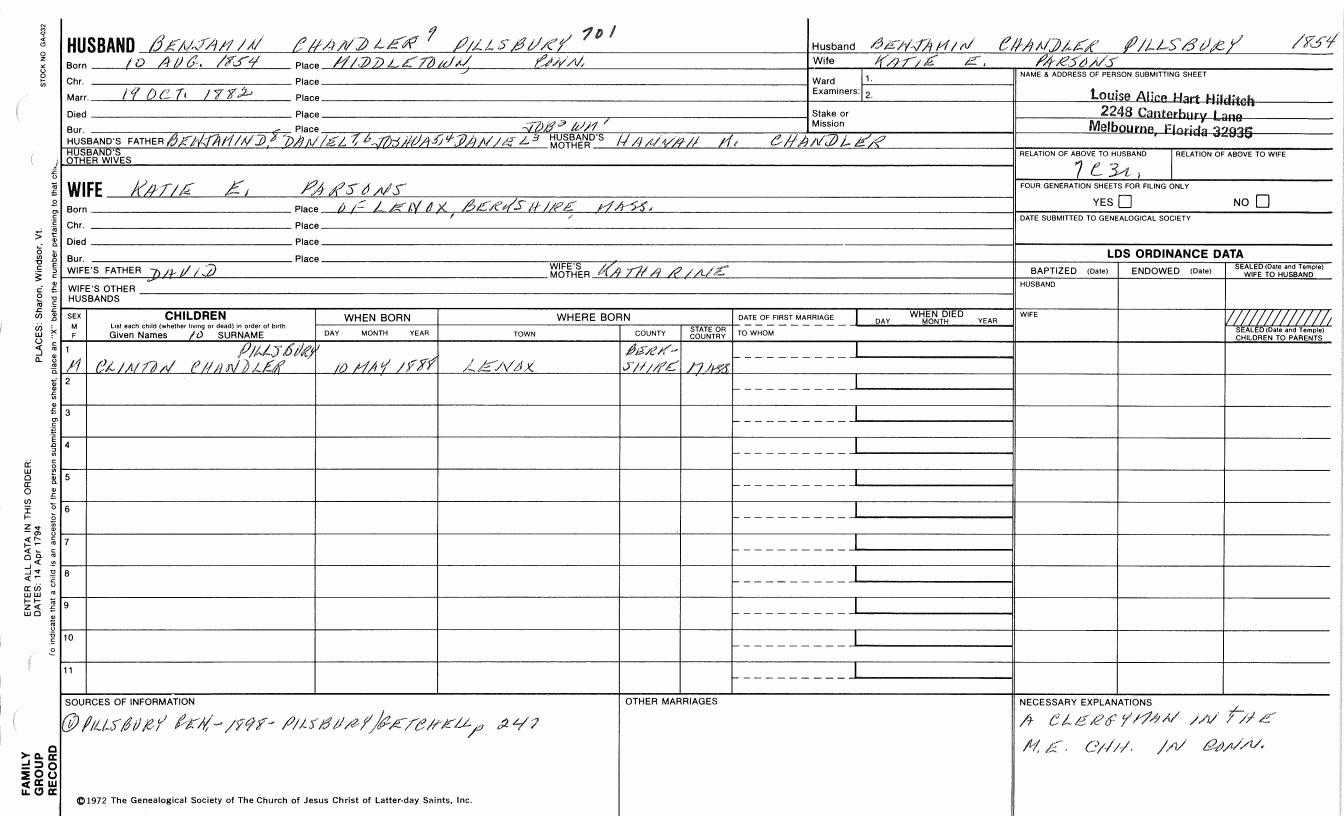 STOCK NO GA-032
HUSBAND BENJAMIN CHANDLER⁹ PILLSBURY 701
Born 10 AUG. 1854 Place MIDDLETOWN, CONN.
Chr. Place
Marr. 19 OCT. 1882 Place
Died Place
Bur. Place JOB² WM¹
HUSBAND'S FATHER BENJAMIN D,⁸ DANIEL⁷,⁶ JOSHUA⁵,⁴ DANIEL³ HUSBAND'S MOTHER HANNAH M. CHANDLER
HUSBAND'S OTHER WIVES
Husband BENJAMIN CHANDLER PILLSBURY 1854
Wife KATIE E. PARSONS
Ward Examiners: 1.
2.
Stake or Mission
NAME & ADDRESS OF PERSON SUBMITTING SHEET
Louise Alice Hart Hilditch
2248 Canterbury Lane
Melbourne, Florida 32935
RELATION OF ABOVE TO HUSBAND RELATION OF ABOVE TO WIFE
7C3R,
FOUR GENERATION SHEETS FOR FILING ONLY
YES NO
DATE SUBMITTED TO GENEALOGICAL SOCIETY
WIFE KATIE E. PARSONS
Born Place OF LENOX, BERKSHIRE, MASS.
Chr. Place
Died Place
Bur. Place
WIFE'S FATHER DAVID WIFE'S MOTHER KATHARINE
WIFE'S OTHER HUSBANDS
LDS ORDINANCE DATA
BAPTIZED (Date) ENDOWED (Date) SEALED (Date and Temple) WIFE TO HUSBAND
HUSBAND
WIFE
SEALED (Date and Temple) CHILDREN TO PARENTS
SEX M F
CHILDREN
List each child (whether living or dead) in order of birth
Given Names 10 SURNAME
WHEN BORN
DAY MONTH YEAR
WHERE BORN
TOWN COUNTY STATE OR COUNTRY
DATE OF FIRST MARRIAGE
TO WHOM
WHEN DIED
DAY MONTH YEAR
1 PILLSBURY BERK-
M CLINTON CHANDLER 10 MAY 1888 LENOX SHIRE MASS
2
3
4
5
6
7
8
9
10
11
SOURCES OF INFORMATION
① PILLSBURY GEN,- 1898- PILSBURY/GETCHELL, p 247
OTHER MARRIAGES
NECESSARY EXPLANATIONS
A CLERGYMAN IN THE
M.E. CHH. IN CONN.
©1972 The Genealogical Society of The Church of Jesus Christ of Latter-day Saints, Inc.
FAMILY GROUP RECORD
ENTER ALL DATA IN THIS ORDER:
DATES: 14 Apr 1794
PLACES: Sharon, Windsor, Vt.
To indicate that a child is an ancestor of the person submitting the sheet, place an "X" behind the number pertaining to that